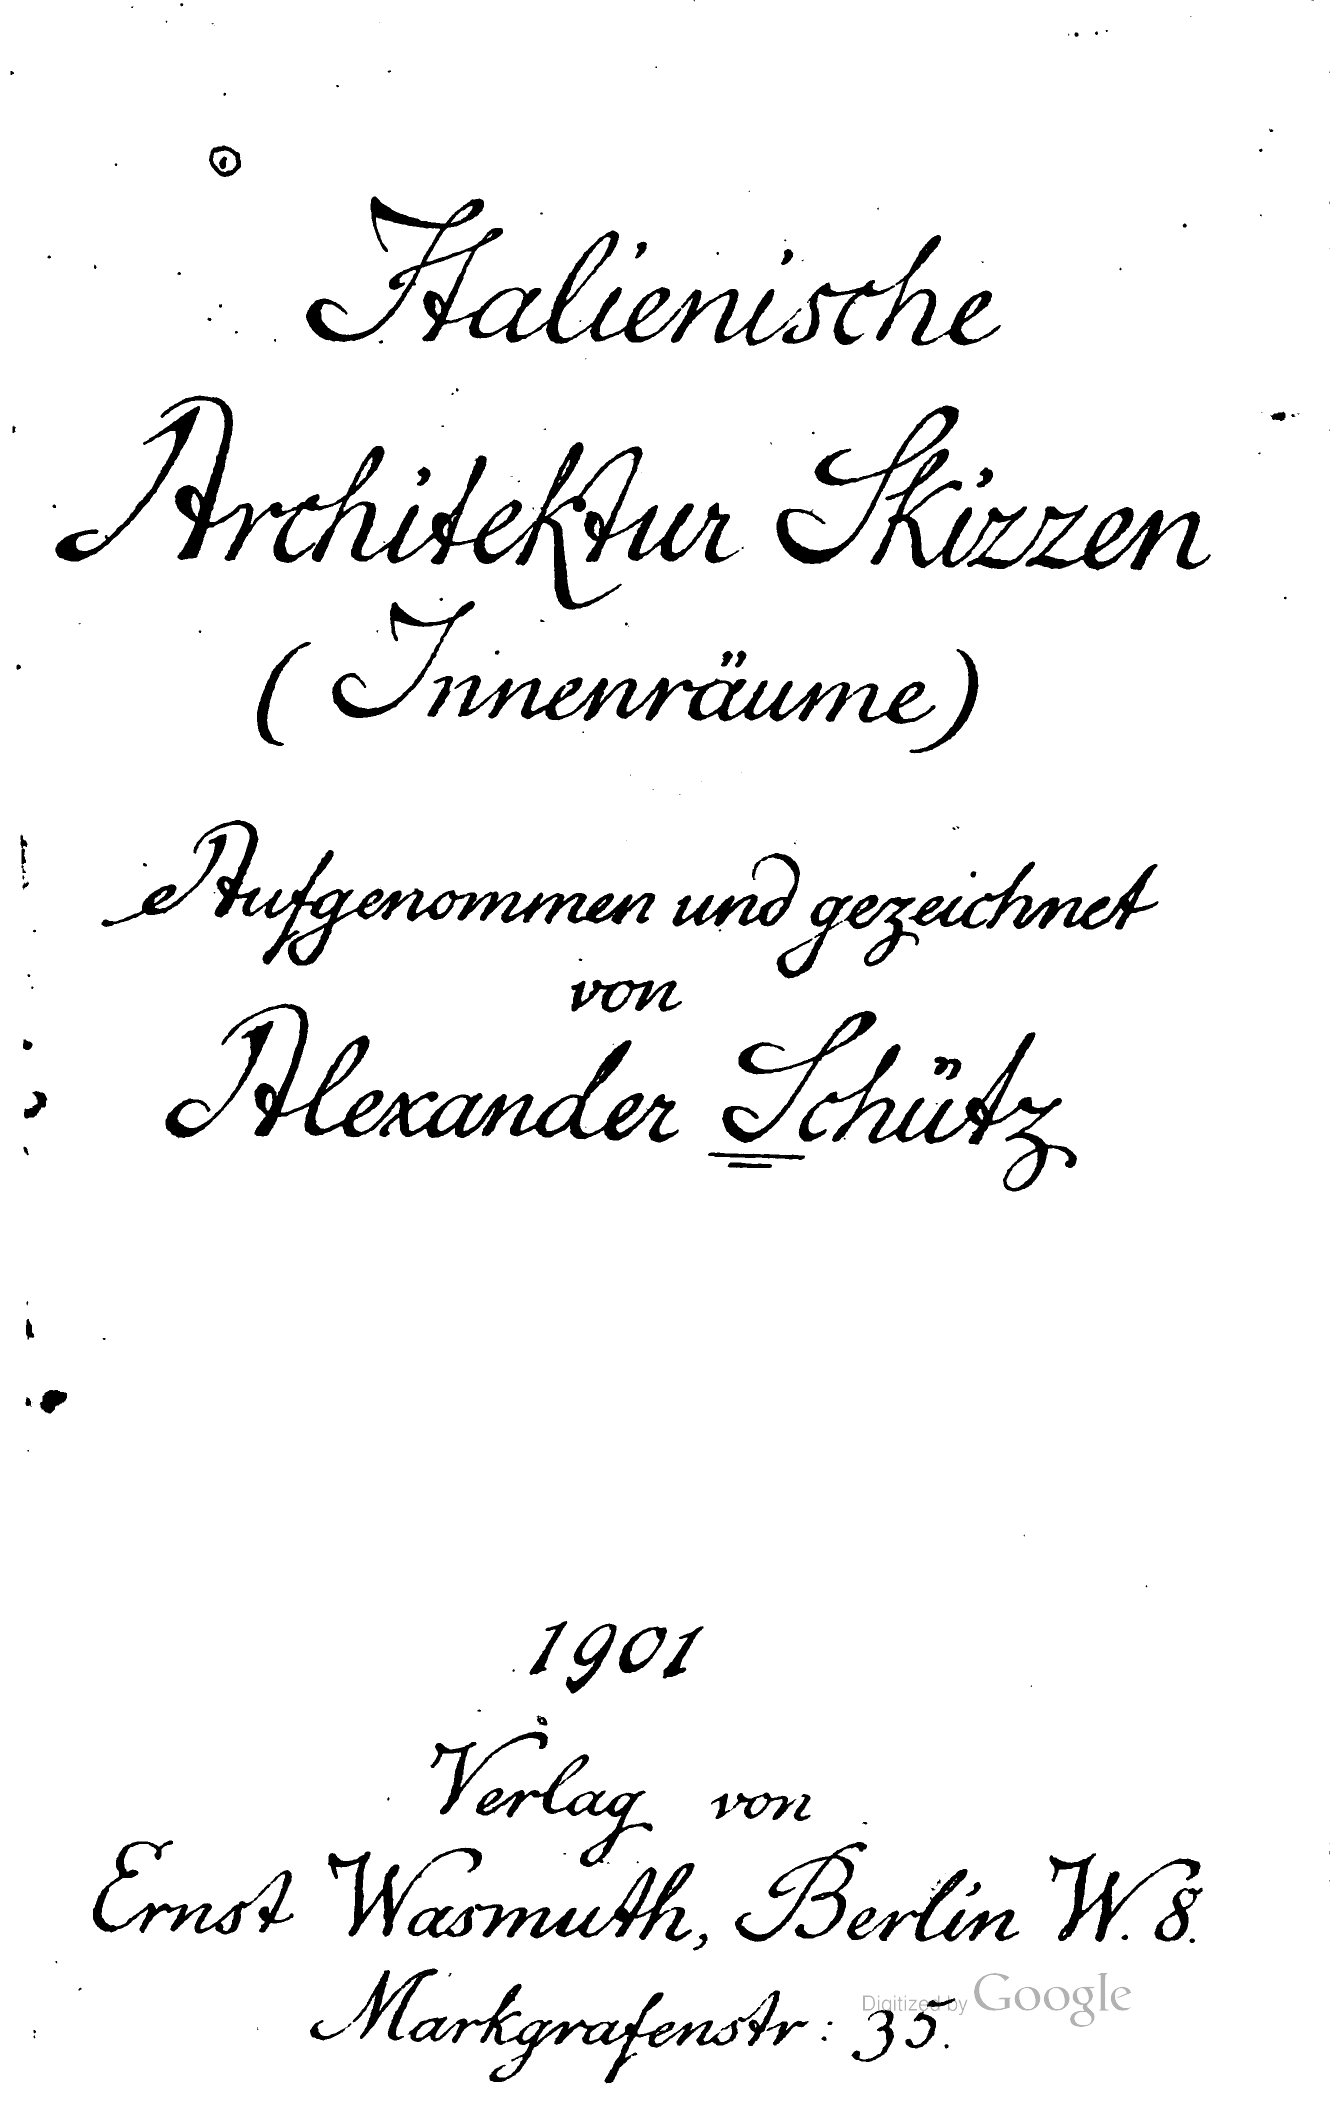 Italienische
Architektur Skizzen
(Innenräume)
Aufgenommen und gezeichnet
von
Alexander Schütz
1901
Verlag von
Ernst Wasmuth, Berlin W. 8.
Markgrafenstr: 35.
Digitized by Google